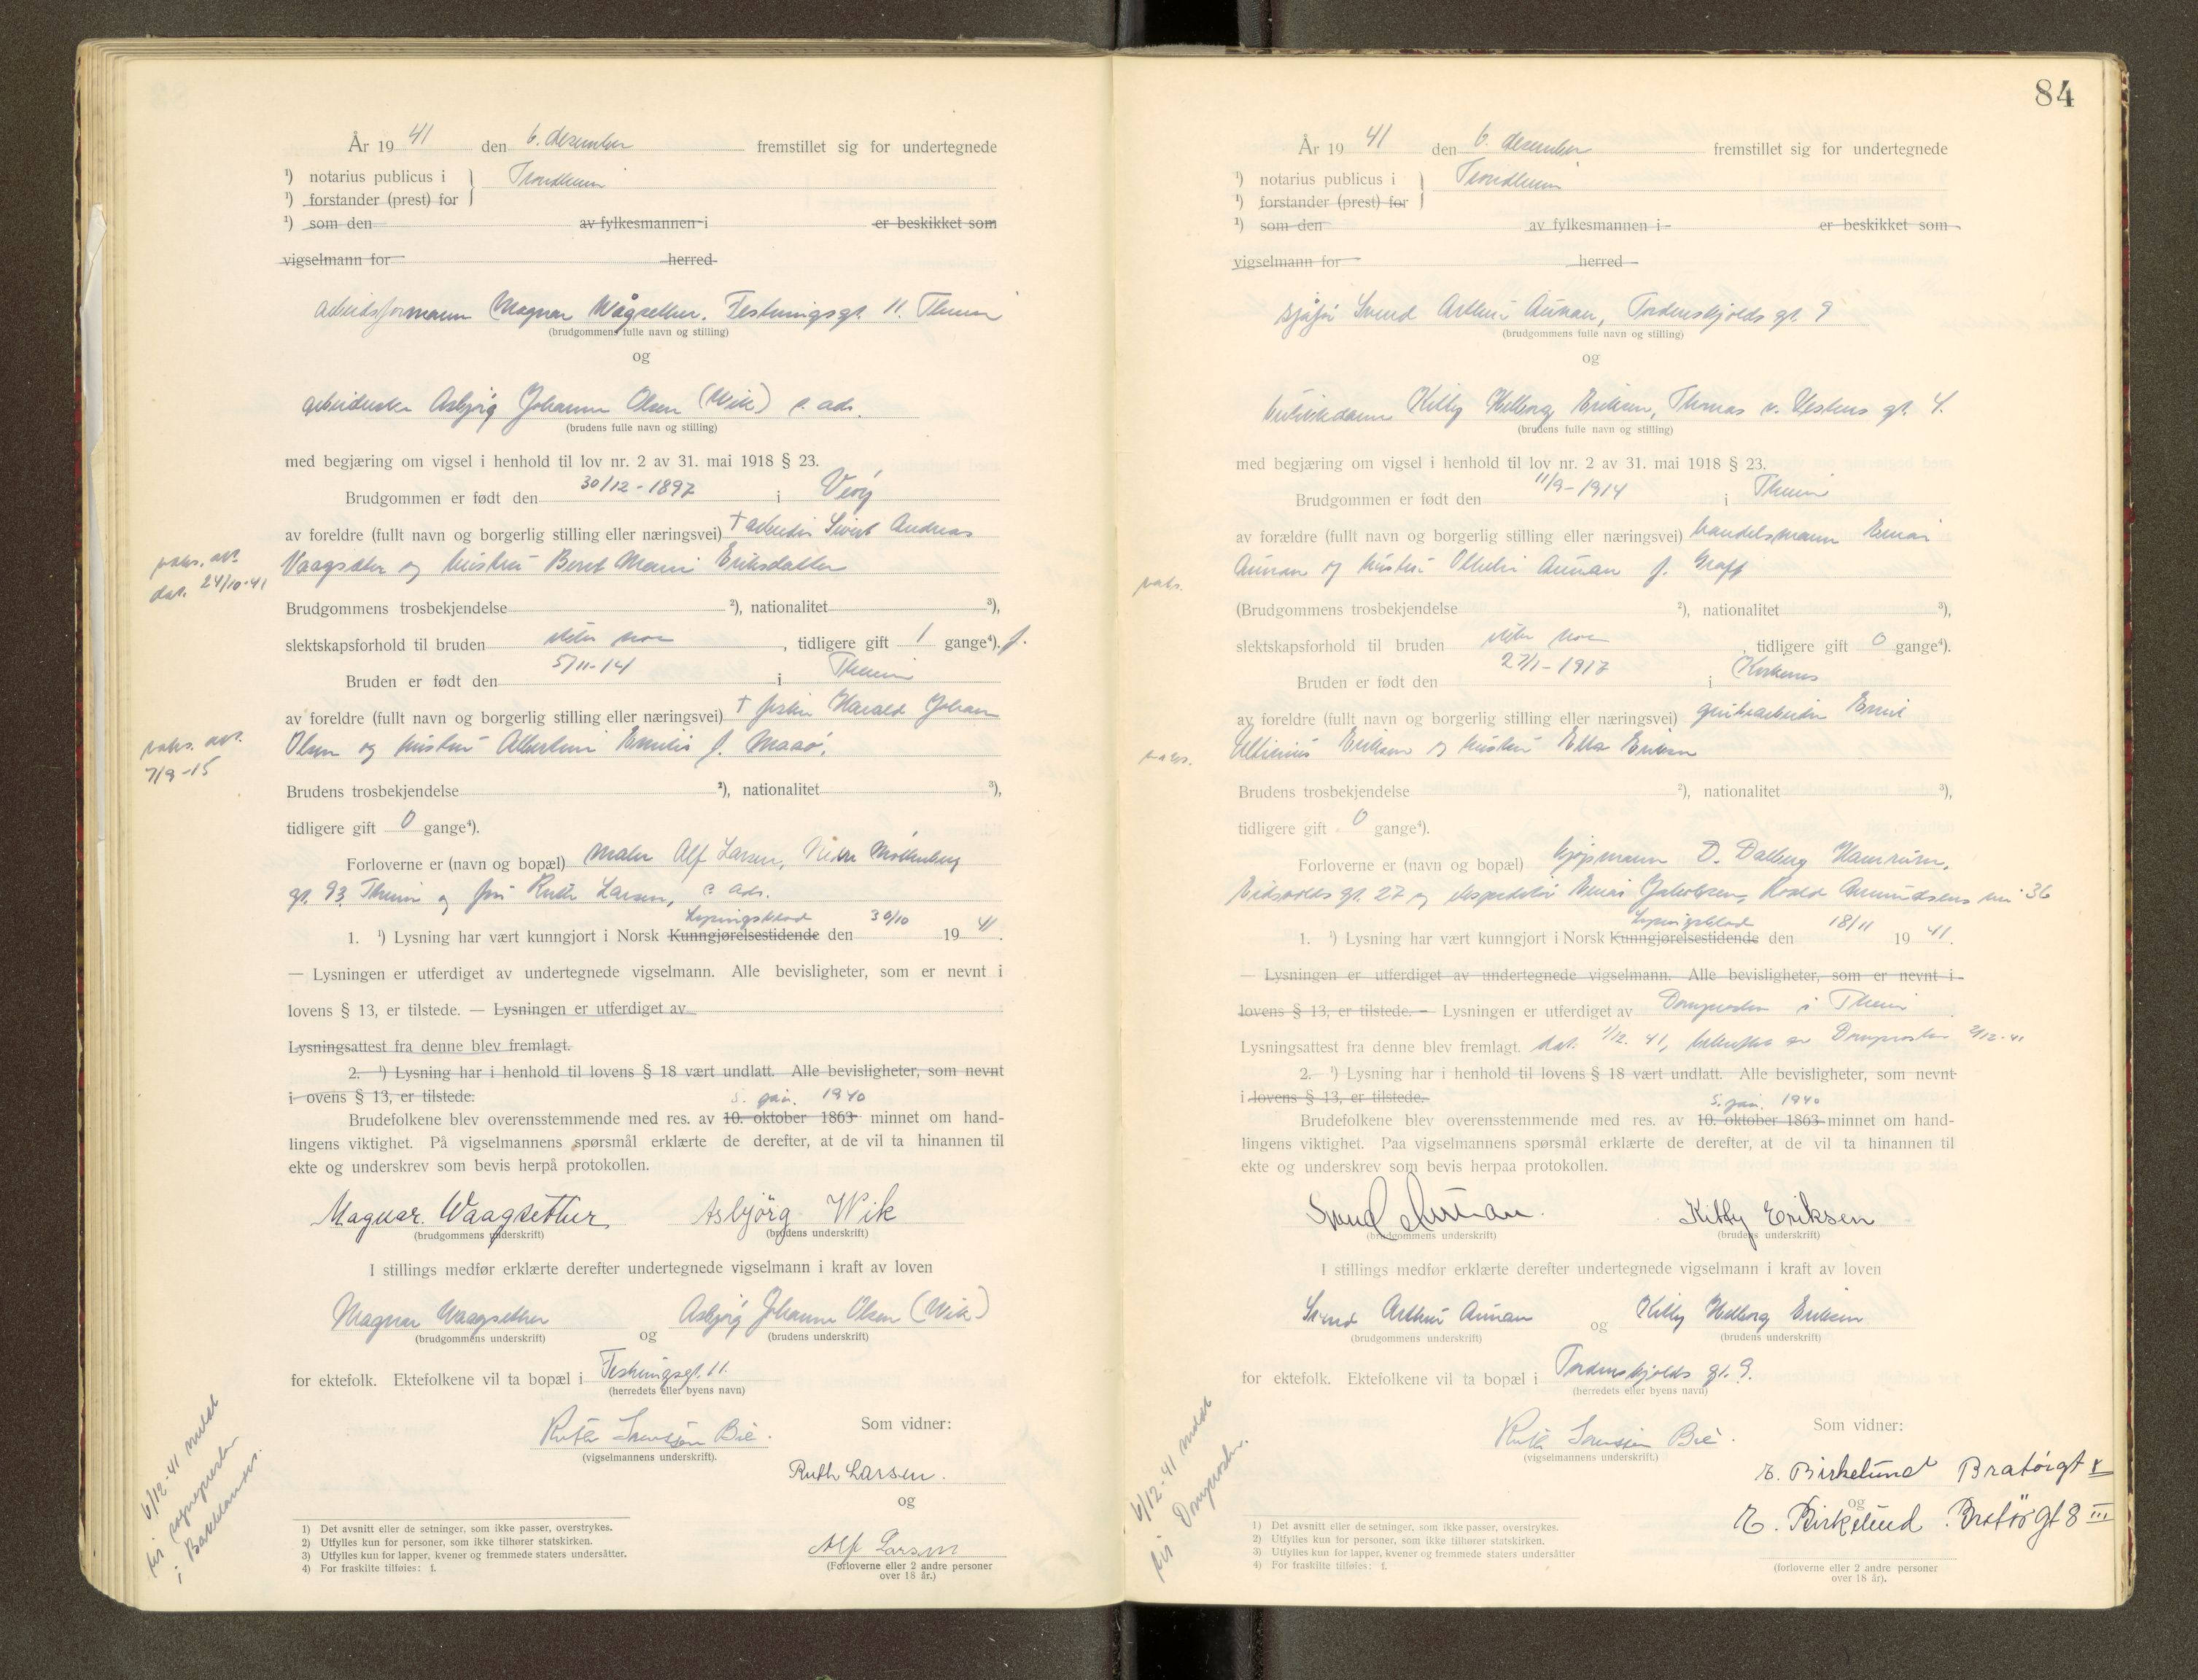 År 19 41 den 6. desember fremstillet sig for undertegnede
¹) notarius publicus i Trondheim
¹) forstander (prest) for
¹) som den av fylkesmannen i er beskikket som
vigselmann for herred
arbeidsformann Magnar Wågsether. Festningsgt. 11. Theim
(brudgommens fulle navn og stilling)
og
arbeiderske Asbjørg Johanne Olsen (Wik) s. ads.
(brudens fulle navn og stilling)
med begjæring om vigsel i henhold til lov nr. 2 av 31. mai 1918 § 23.
Brudgommen er født den 30/12-1897 i
av foreldre (fullt navn og borgerlig stilling eller næringsvei) † arbeider Sivert Andreas
Vaagsæther og hustru Beret Marie Eriksdatter
paks. att.
dat. 24/10-41
Brudgommens trosbekjendelse ²), nationalitet ³),
slektskapsforhold til bruden noe, tidligere gift 1 gange⁴). f.
Bruden er født den 5/11-14 i Theim
av foreldre (fullt navn og borgerlig stilling eller næringsvei) † fisker Harald Johan
Olsen og hustru Albertine Emilie f. Maaø.
paks. att.
7/9-15
Brudens trosbekjendelse ²), nationalitet ³),
tidligere gift 0 gange⁴).
Forloverne er (navn og bopæl) maler Alf Larsen, Nedre Møllenberg
gt. 93, Theim og fru Ruth Larsen, s. ads.
Lysningsblad
1. ¹) Lysning har vært kunngjort i Norsk Kunngjørelsestidende den 30/10 19 41.
— Lysningen er utferdiget av undertegnede vigselmann. Alle bevisligheter, som er nevnt i
lovens § 13, er tilstede. — Lysningen er utferdiget av
Lysningsattest fra denne blev fremlagt.
2. ¹) Lysning har i henhold til lovens § 18 vært undlatt. Alle bevisligheter, som nevnt
i ovens § 13, er tilstede.
5. jan. 1940
Brudefolkene blev overensstemmende med res. av 10. oktober 1863 minnet om hand-
lingens viktighet. På vigselmannens spørsmål erklærte de derefter, at de vil ta hinannen til
ekte og underskrev som bevis herpå protokollen.
Magnar. Waagsether Asbjörg Wik
(brudgommens underskrift) (brudens underskrift)
I stillings medfør erklærte derefter undertegnede vigselmann i kraft av loven
Magnar Waagsether og Asbjørg Johanne Olsen (Wik)
(brudgommens underskrift) (brudens underskrift)
for ektefolk. Ektefolkene vil ta bopæl i Festningsgt. 11.
(herredets eller byens navn)
Som vidner:
(vigselmannens underskrift).
Ruth Larsen.
og
Alf Larsen
(Forloverne eller 2 andre personer
over 18 år.)
6/12-41 meldt
til sognepresten
i Bakklandet.
1) Det avsnitt eller de setninger, som ikke passer, overstrykes.
2) Utfylles kun for personer, som ikke tilhører statskirken.
3) Utfylles kun for lapper, kvener og fremmede staters undersåtter.
4) For fraskilte tilføies: f.
84
År 19 41 den 6. desember fremstillet sig for undertegnede
¹) notarius publicus i Trondheim
¹) forstander (prest) for
¹) som den av fylkesmannen i er beskikket som
vigselmann for herred
sjåfør Svend Arthur Aunan, Tordenskjolds gt. 9
(brudgommens fulle navn og stilling)
og
butikkdame Kitty Helborg Eriksen, Thomas v. Westens gt. 4.
(brudens fulle navn og stilling)
med begjæring om vigsel i henhold til lov nr. 2 av 31. mai 1918 § 23.
Brudgommen er født den 11/9-1914 i Theim
av forældre (fullt navn og borgerlig stilling eller næringsvei) handelsmann Einar
Aunan og hustru Aunan f. Graff
paks.
(Brudgommens trosbekjendelse ²), nationalitet ³),
slektskapsforhold til bruden noe tidligere gift 0 gange⁴).
Bruden er født den 27/1-1917 i Kirkenes
av foreldre (fullt navn og borgerlig stilling eller næringsvei) grubearbeider
Eriksen og hustru Ella Eriksen
paks.
Brudens trosbekjendelse ²), nationalitet ³),
tidligere gift 0 gange⁴).
Forloverne er (navn og bopæl) kjøpmann O. Dalberg
Eidsvolds gt. 27 og ekspeditør Einar Jakobsen, Roald Amundsens vei 36
Lysningsblad
1. ¹) Lysning har vært kunngjort i Norsk Kunngjørelsestidende den 18/11 19 41.
— Lysningen er utferdiget av undertegnede vigselmann. Alle bevisligheter, som er nevnt i
lovens § 13, er tilstede. — Lysningen er utferdiget av Domprosten i Theim
Lysningsattest fra denne blev fremlagt. dat. 1/12. 41, bekreftet av Domprosten 2/12-41
2. ¹) Lysning har i henhold til lovens § 18 vært undlatt. Alle bevisligheter, som nevnt
i lovens § 13, er tilstede.
5. jan. 1940
Brudefolkene blev overensstemmende med res. av 10. oktober 1863 minnet om hand-
lingens viktighet. Paa vigselmannens spørsmål erklærte de derefter, at de vil ta hinannen til
ekte og underskrev som bevis herpaa protokollen.
Svend Aunan. Kitty Eriksen
(brudgommens underskrift) (brudens underskrift)
I stillings medfør erklærte derefter undertegnede vigselmann i kraft av loven
Svend Arthur Aunan og Kitty Helborg Eriksen
(brudgommens underskrift) (brudens underskrift)
for ektefolk. Ektefolkene vil ta bopæl i Tordenskjolds gt. 9.
(herredets eller byens navn)
Som vidner:
(vigselmannens underskrift.)
E. Birkelund Bratörgt
og
E. Birkelund Bratörgt 8 III
(forloverne eller 2 andre personer
over 18 år).
6/12-41 meldt
til Domprosten.
1) Det avsnitt eller de setninger, som ikke passer, overstrykes.
2) Utfylles kun for personer, som ikke tilhører statskirken.
3) Utfylles kun for lapper, kvener og fremmede staters undersåtter
4) For fraskilte tilføies: f.